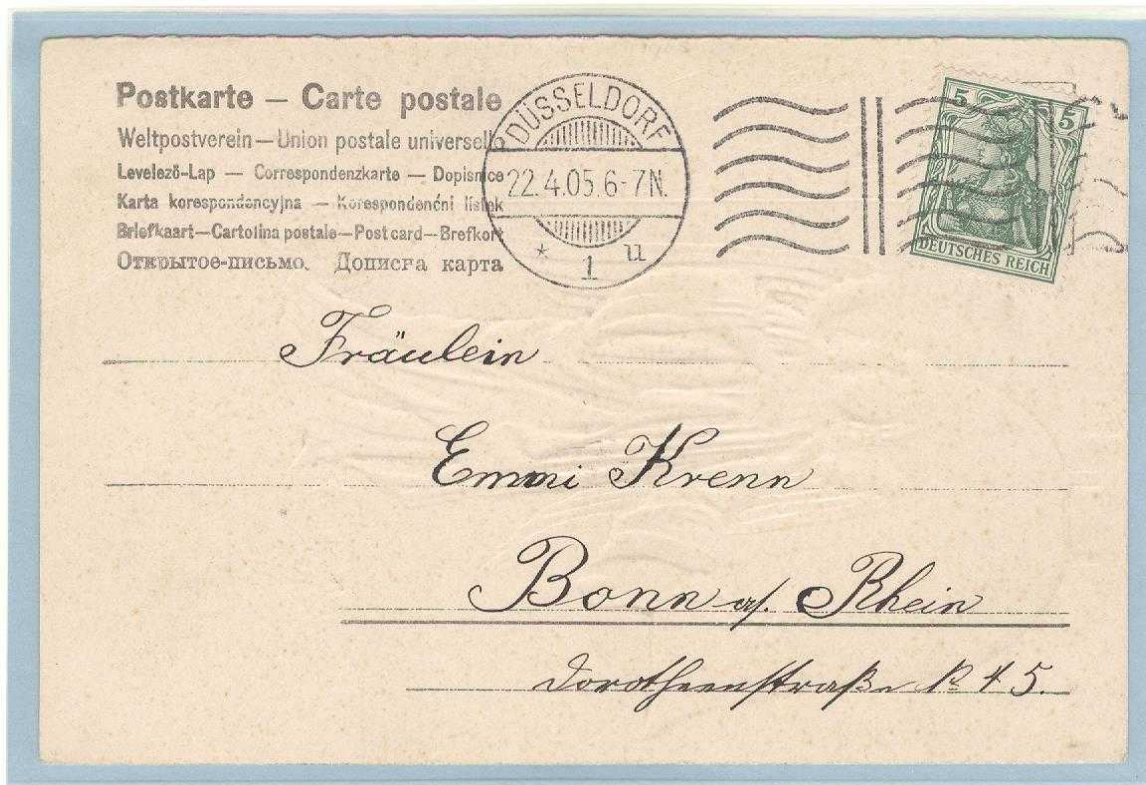 Postkarte – Carte postale
Weltpostverein – Union postale universelle
Levelező-Lap — Correspondenzkarte — Dopisnice
Karta korespondencyjna — Korespondenční lístek
Briefkaart – Cartolina postale – Post card – Brefkort
Открытое-письмо. Дописна карта
DÜSSELDORF
22.4.05.6-7N.
* 1 u
5 5
DEUTSCHES REICH
Fräulein
Emmi Krenn
Bonn a/. Rhein
Dorotheenstraße № 45.